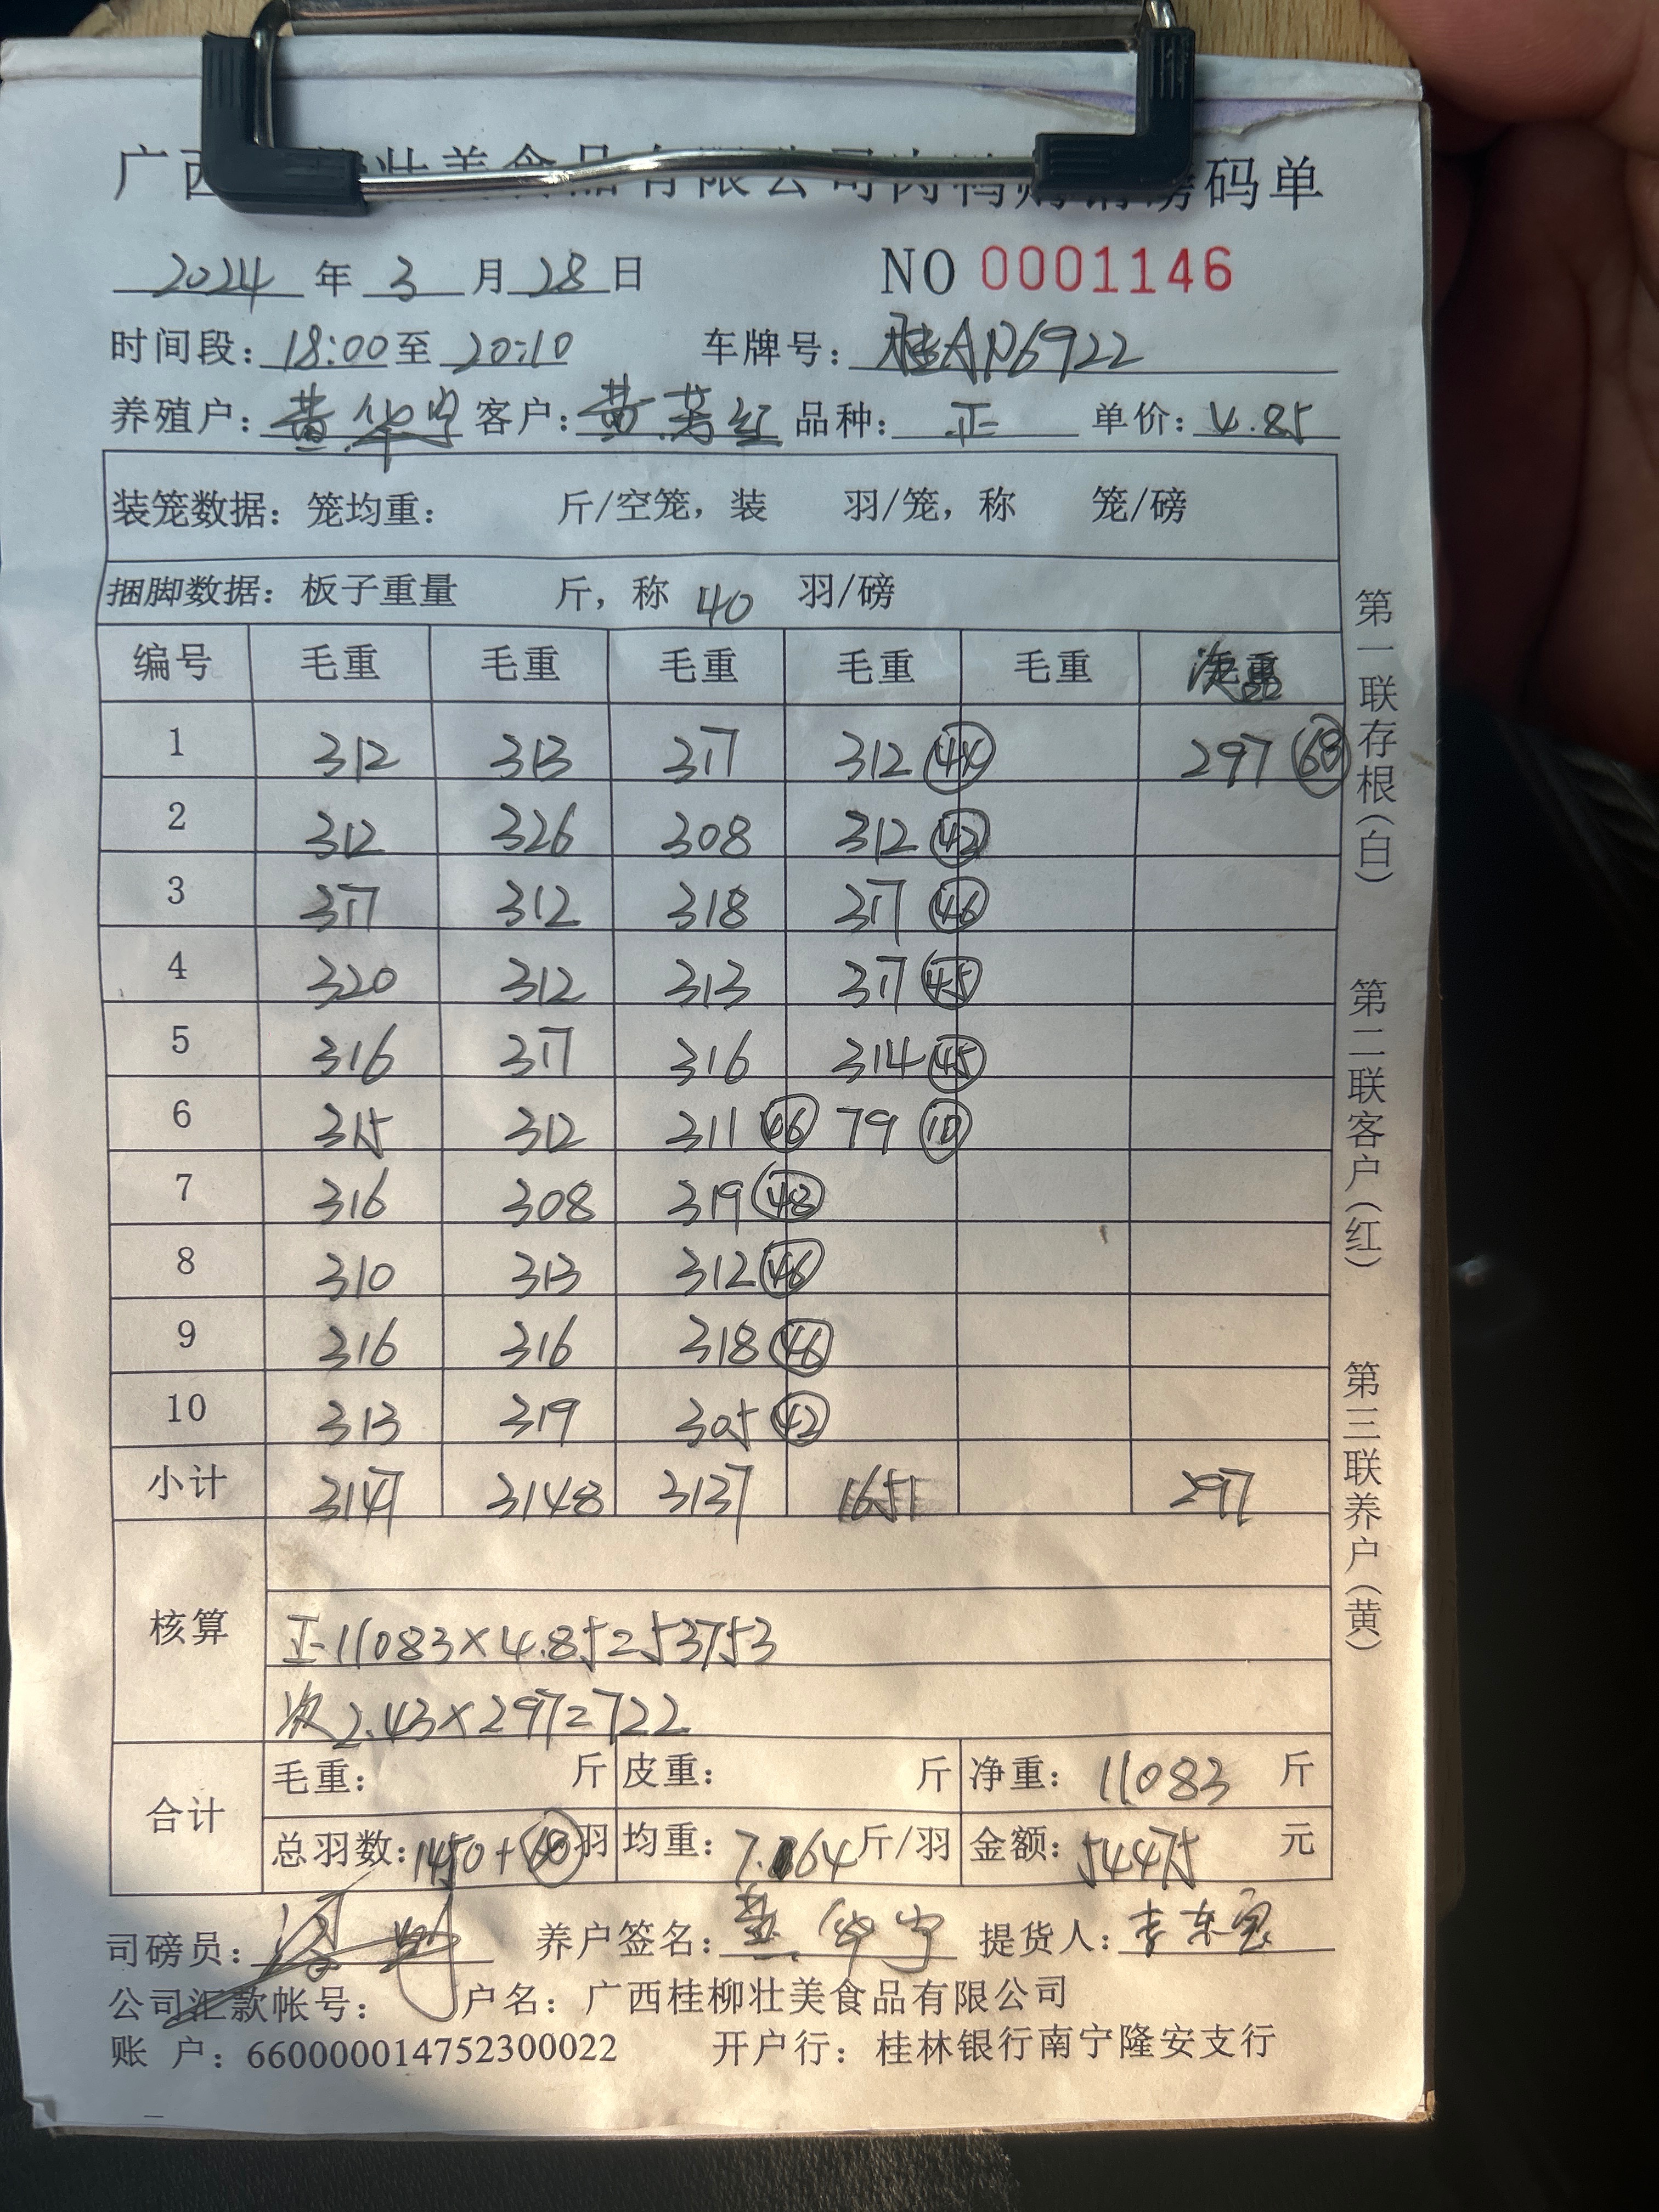 广西 壮美食品有限公司肉鸭购销磅码单
2024 年 3 月 28 日 NO 0001146
时间段: 18:00 至 20:10 车牌号: 桂AP6922
养殖户: 黄华宁 客户: 黄芳红 品种: 正 单价: 4.85
装笼数据: 笼均重: 斤/空笼, 装 羽/笼, 称 笼/磅
捆脚数据: 板子重量 斤, 称 40 羽/磅
编号 毛重 毛重 毛重 毛重 毛重 次品
1 312 313 317 312 297
2 312 326 308 312 42
3 317 312 318 317 46
4 320 312 313 317 45
5 316 317 316 314 45
6 315 312 311 46 79 10
7 316 308 319 48
8 310 313 312 46
9 316 316 318 46
10 313 319 305 42
小计 3147 3148 3137 1651 297
核算
正 11083×4.85=53753
次 2.43×297=722
合计 毛重: 斤 皮重: 斤 净重: 11083 斤
总羽数: 1450+ 羽 均重: 7. 64 斤/羽 金额: 54475 元
司磅员: 养户签名: 黄华宁 提货人: 李东
公司汇款帐号: 户名: 广西桂柳壮美食品有限公司
账 户: 660000014752300022 开户行: 桂林银行南宁隆安支行
第一联存根(白) 第二联客户(红) 第三联养户(黄)